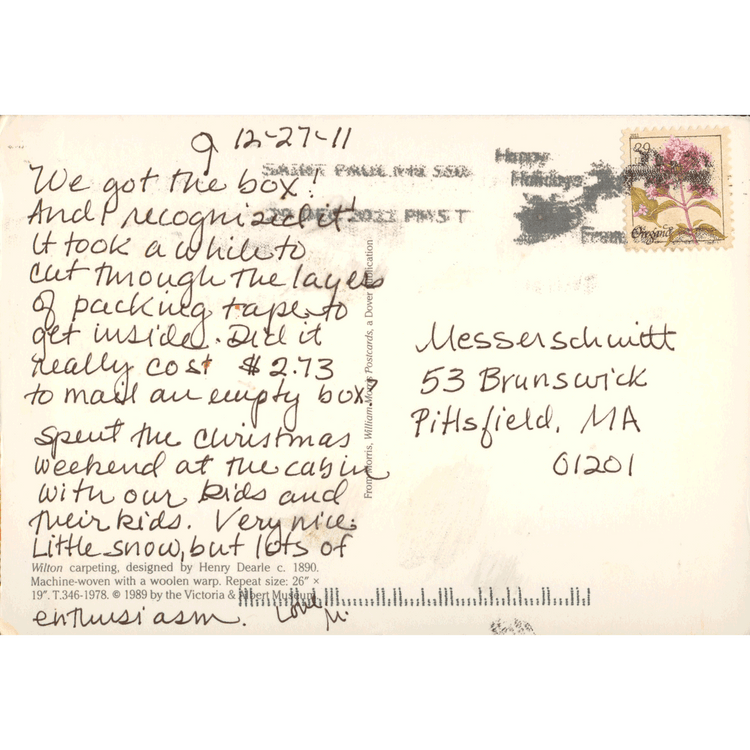 9 12-27-11
We got the box!
And I recognized it!
It took a while to
cut through the layers
of packing tape to
get inside. Did it
really cost $2.73
to mail an empty box?
Spent the Christmas
weekend at the cabin
with our kids and
their kids. Very nice.
Little snow, but lots of
Wilton carpeting, designed by Henry Dearle c. 1890.
Machine-woven with a woolen warp. Repeat size: 26" ×
19". T.346-1978. © 1989 by the Victoria & Albert Museum
enthusiasm. Love, M.
From Morris, William Morris Postcards, a Dover Publication
SAINT PAUL MN 550
27 DEC 2011 PM 5 T
Happy
Holidays
From
29
Messerschmitt
53 Brunswick
Pittsfield, MA
01201